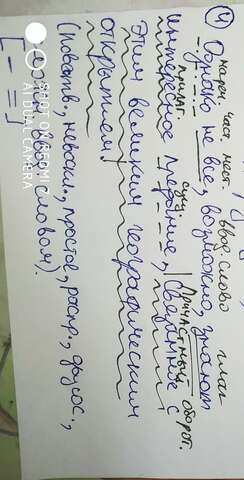 ④ нареч. част. мест. ввод. слово глаг.
Однако не все, возможно, знают
прилаг. сущ. Причастный оборот.
интересное предание, |связанное с
этим великим географическим
открытием|.
(повеств., невоскл., простое, распр., двусос.,
ввод. словом).
[- =]
SHOT ON REDMI 7
AI DUAL CAMERA